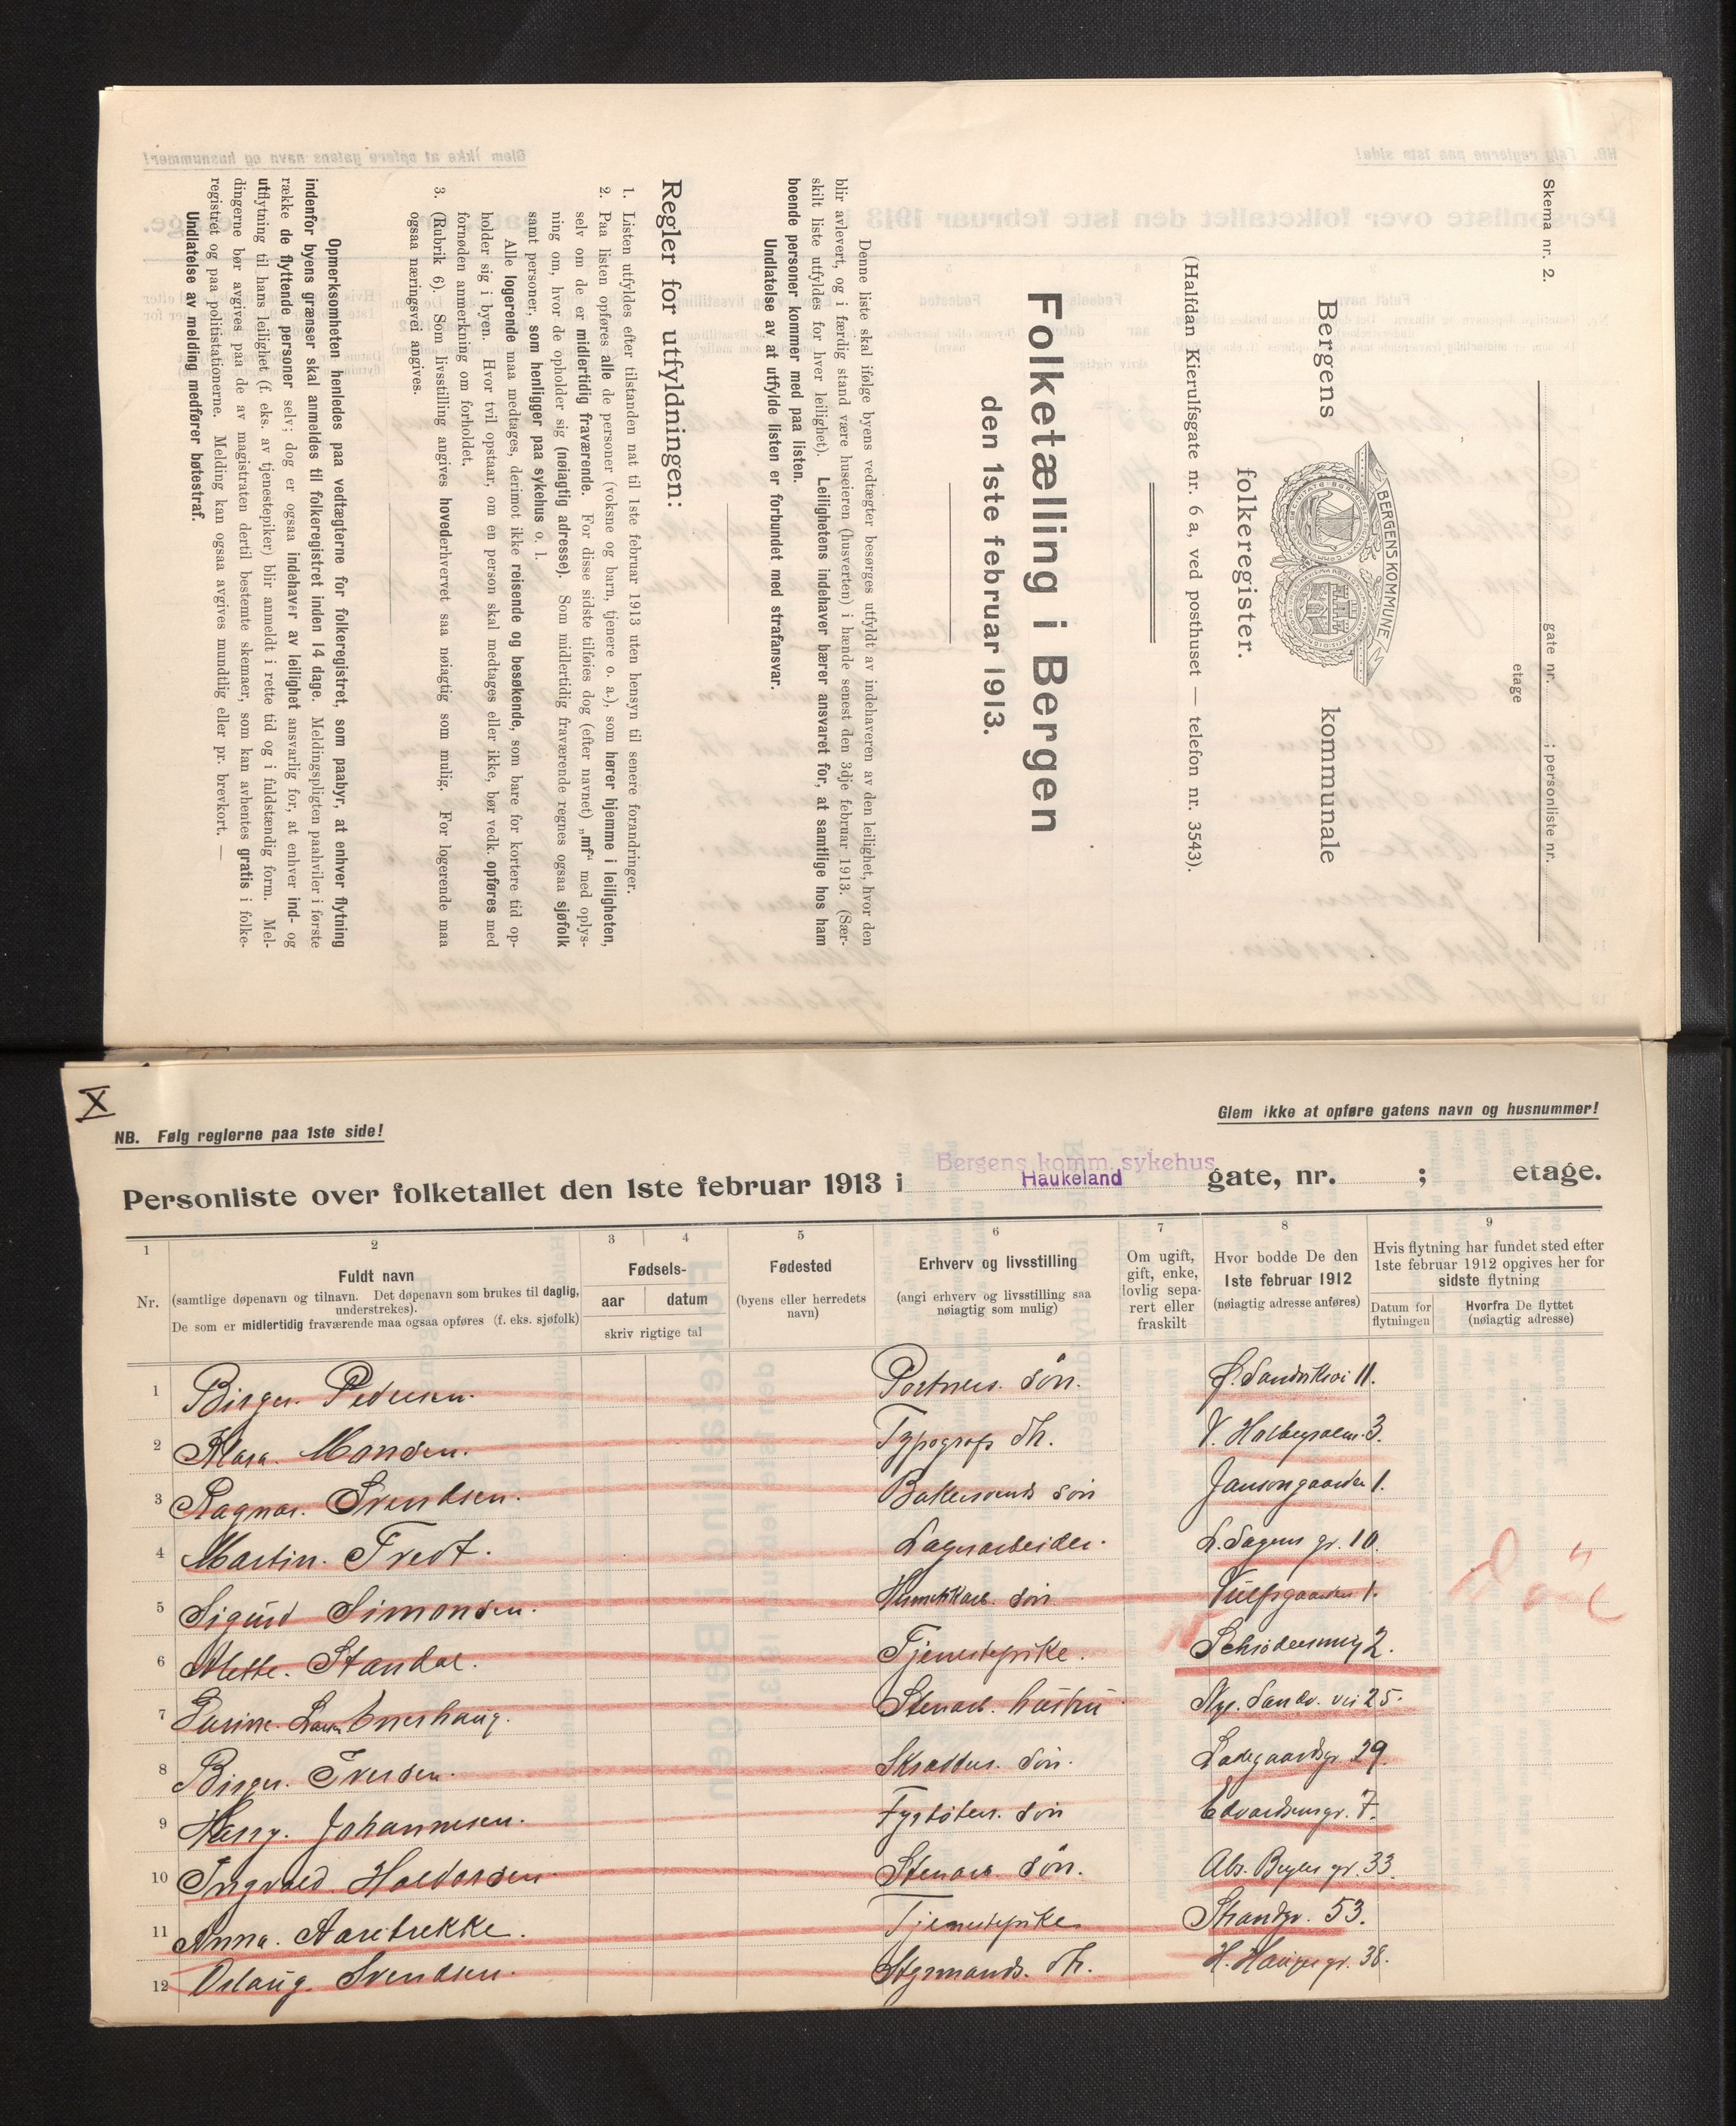 Skema nr. 2.
gate nr. i personliste nr.
etage
Bergens kommunale
BERGENS KOMMUNE
folkeregister.
(Halfdan Kierulfsgate nr. 6 a, ved posthuset — telefon nr. 3543).
Folketælling i Bergen
den 1ste februar 1913.
Denne liste skal ifølge byens vedtægter besørges utfyldt av indehaveren av den leilighet, hvor den
blir avlevert, og i færdig stand være huseieren (husverten) i hænde senest den 3dje februar 1913. (Sær-
skilt liste utfyldes for hver leilighet). Leilighetens indehaver bærer ansvaret for, at samtlige hos ham
boende personer kommer med paa listen.
Undlatelse av at utfylde listen er forbundet med strafansvar.
Regler for utfyldningen:
1. Listen utfyldes efter tilstanden nat til 1ste februar 1913 uten hensyn til senere forandringer.
2. Paa listen opføres alle de personer (voksne og barn, tjenere o. a.), som hører hjemme i leiligheten,
selv om de er midlertidig fraværende. For disse sidste tilføies dog (efter navnet) „mf“ med oplys-
ning om, hvor de opholder sig (nøiagtig adresse). Som midlertidig fraværende regnes ogsaa sjøfolk
samt personer, som henligger paa sykehus o. l.
Alle logerende maa medtages, derimot ikke reisende og besøkende, som bare for kortere tid op-
holder sig i byen. Hvor tvil opstaar, om en person skal medtages eller ikke, bør vedk. opføres med
fornøden anmerkning om forholdet.
3. (Rubrik 6). Som livsstilling angives hovederhvervet saa nøiagtig som mulig. For logerende maa
ogsaa næringsvei angives.
Opmerksomheten henledes paa vedtægterne for folkeregistret, som paabyr, at enhver flytning
indenfor byens grænser skal anmeldes til folkeregistret inden 14 dage. Meldingspligten paahviler i første
række de flyttende personer selv; dog er ogsaa indehaver av leilighet ansvarlig for, at enhver ind- og
utflytning til hans leilighet (f. eks. av tjenestepiker) blir anmeldt i rette tid og i fuldstændig form. Mel-
dingerne bør avgives paa de av magistraten dertil bestemte skemaer, som kan avhentes gratis i folke-
registret og paa politistationerne. Melding kan ogsaa avgives mundtlig eller pr. brevkort. —
Undlatelse av melding medfører bøtestraf.
X
NB. Følg reglerne paa 1ste side!
Glem ikke at opføre gatens navn og husnummer!
Bergens komm. sykehus
Haukeland
Personliste over folketallet den 1ste februar 1913 i gate, nr. ; etage.
1 2 3 4 5 6 7 8 9
Nr.
Fuldt navn
(samtlige døpenavn og tilnavn. Det døpenavn som brukes til daglig,
understrekes).
De som er midlertidig fraværende maa ogsaa opføres (f. eks. sjøfolk)
Fødsels-
aar datum
skriv rigtige tal
Fødested
(byens eller herredets
navn)
Erhverv og livsstilling
(angi erhverv og livsstilling saa
nøiagtig som mulig)
Om ugift,
gift, enke,
lovlig sepa-
rert eller
fraskilt
Hvor bodde De den
1ste februar 1912
(nøiagtig adresse anføres)
Hvis flytning har fundet sted efter
1ste februar 1912 opgives her for
sidste flytning
Datum for
flytningen
Hvorfra De flyttet
(nøiagtig adresse)
1 Birger. Pedersen. Portners. søn. 11.
2 Klara. Monsen. Typografs th. V. Holbergsalm. 3.
3 Ragnar. Svendsen. Bakersvends søn Jansongaarden 1.
4 Martin. Tveit. Lagerarbeider. L. Sagens gr. 10.
5 Sigurd Simonsen. søn 1.
6 Mette. Standal. Tjenestepike. 2.
7 Stenarb. hustru Nye. Sandv. vei 25.
8 Birger. Iversen. Skrædder. søn. Ladegaardsgr. 29.
9 Harry. Johannesen. Fyrbøters. søn Edvardsensgr. 7.
10 Ingvald. Haldorsen. Stenarb. søn. Abs. Beyers gr. 33
11 Anna. Aarebrekke. Tjenestepike Strandgr. 53.
12 Oslaug. Svendsen. Styrmands. th. H. Hauges gr. 38.